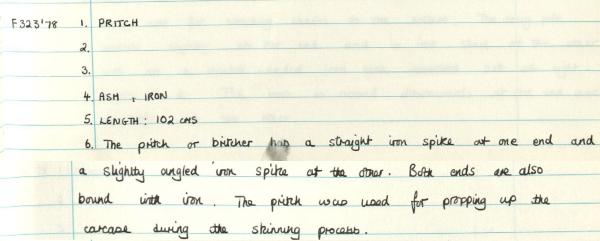 F323'78 1. PRITCH
2.
3.
4. ASH, IRON
5. LENGTH: 102 CMS
6. The pritch or butcher has a straight iron spike at one end and
a slightly angled iron spike at the other. Both ends are also
bound with iron. The pritch was used for propping up the
carcase during the skinning process.